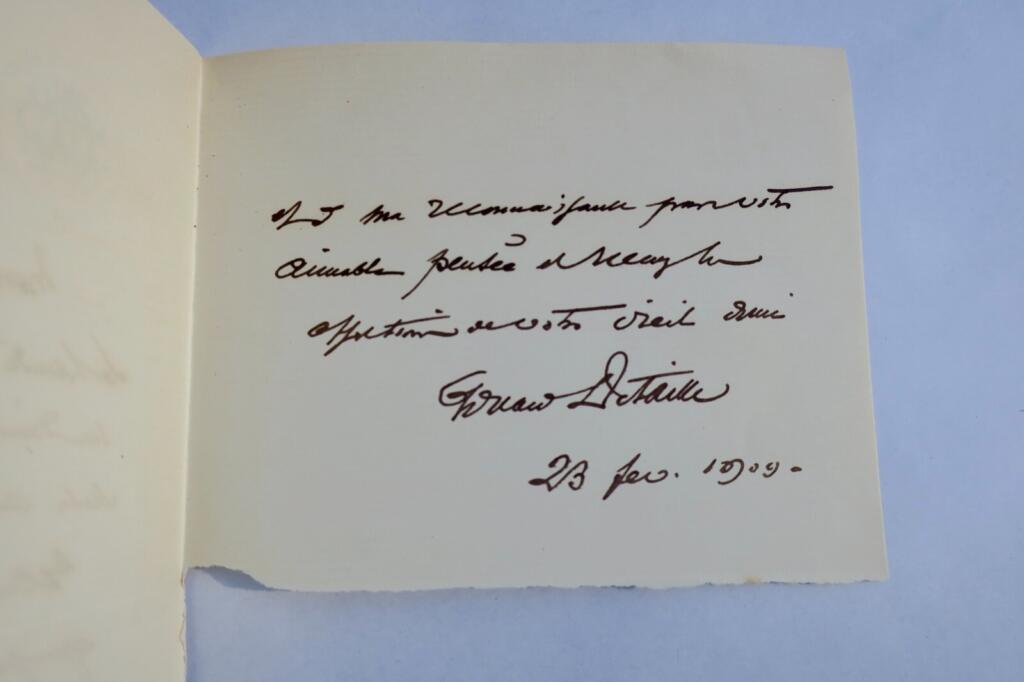 et ma reconnaissance pour votre
aimable pensée et
affection de votre vieil ami
Edouard Detaille
23 fev. 1909.